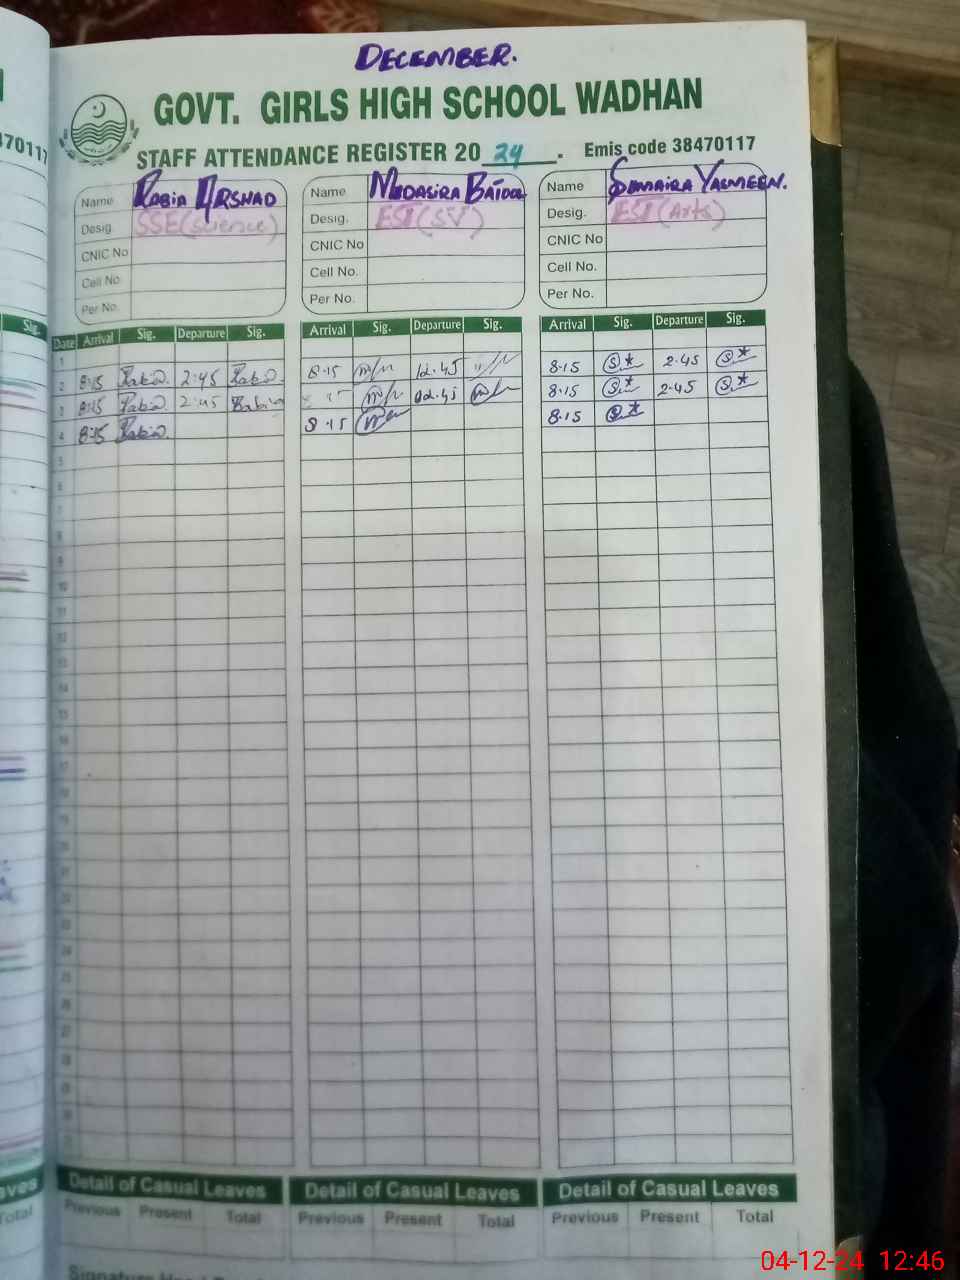 DECEMBER.
GOVT. GIRLS HIGH SCHOOL WADHAN
STAFF ATTENDANCE REGISTER 20 24 . Emis code 38470117
Name Rabia ARSHAD Name MUDASIRA BATOOL Name SUMAIRA YASMEEN.
Desig. SSE(science) Desig. ESE(SV) Desig. ESE(Arts)
CNIC No CNIC No CNIC No
Cell No. Cell No. Cell No.
Per No. Per No. Per No.
Date Arrival Sig. Departure Sig. Arrival Sig. Departure Sig. Arrival Sig. Departure Sig.
1
2 8:15 Rabia 2:45 Rabia 8·15 12.45 8·15 2·45
3 8:15 Rabia 2:45 Rabia 02.45 8·15 2·45
4 8:15 Rabia 8·15 8·15
5
6
7
8
9
10
11
12
13
14
15
16
17
18
19
20
21
22
23
24
25
26
27
28
29
30
31
Detail of Casual Leaves Detail of Casual Leaves Detail of Casual Leaves
Previous Present Total Previous Present Total Previous Present Total
04-12-24 12:46